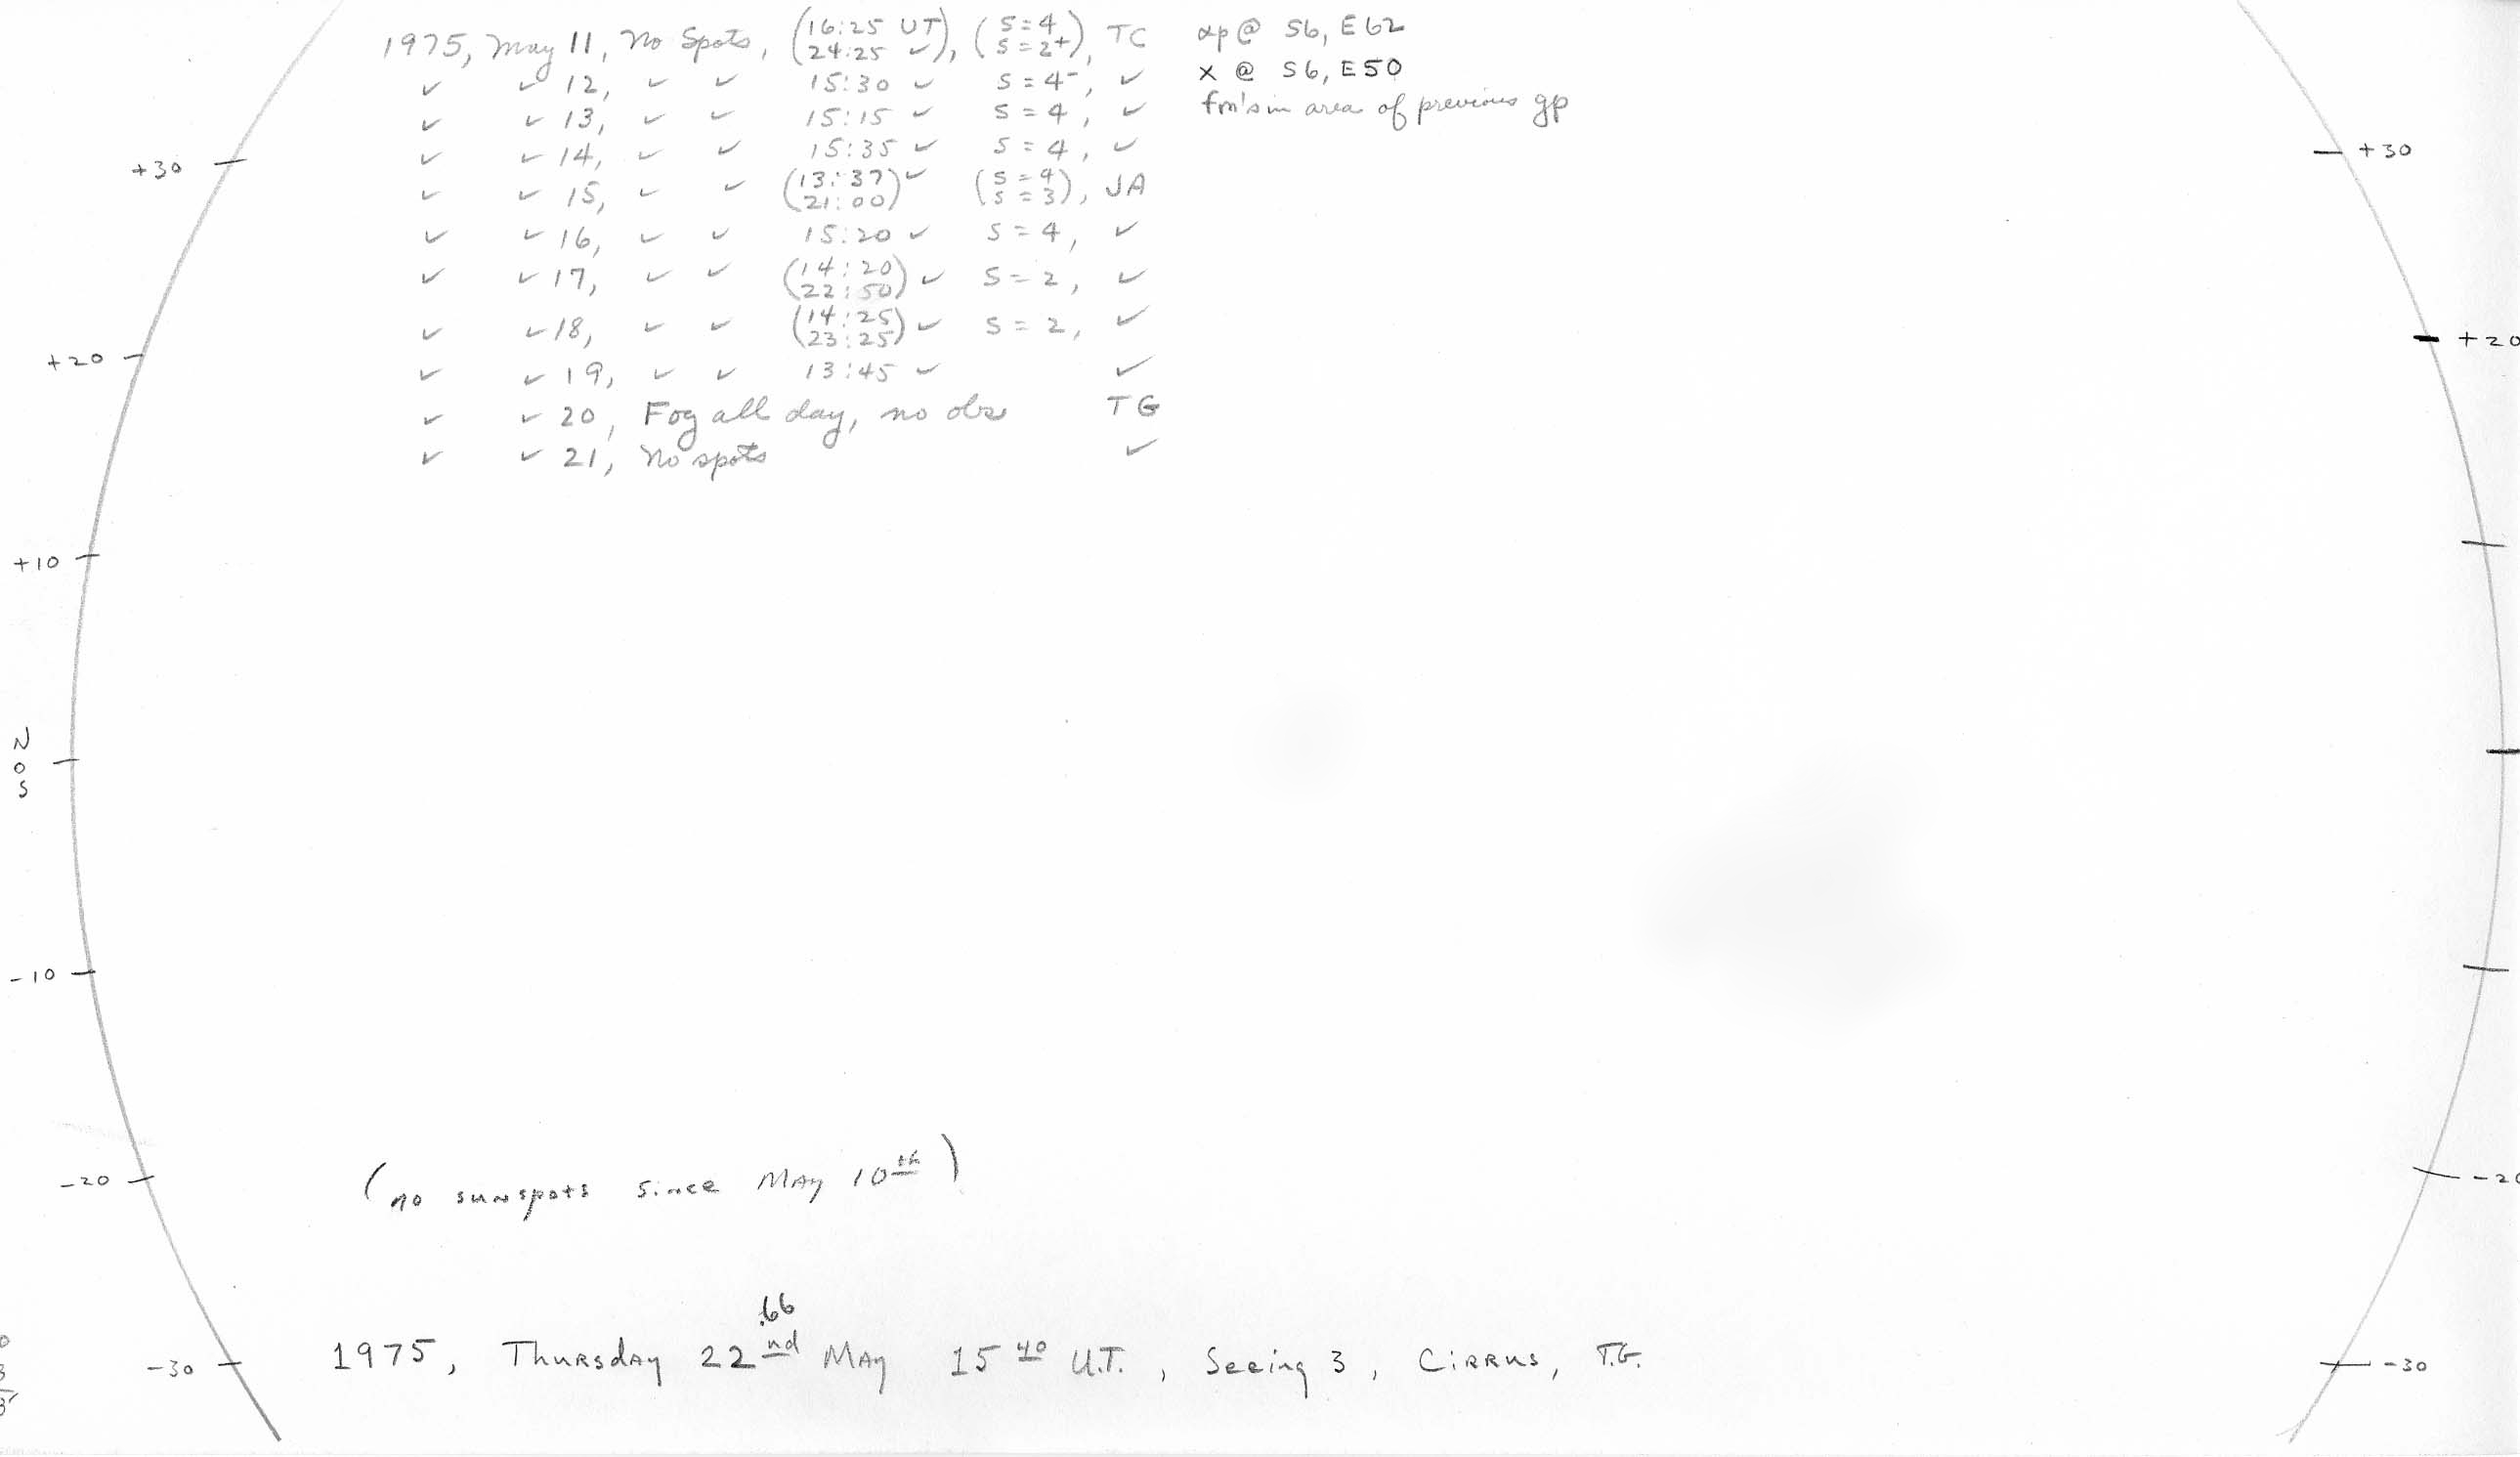 1975, May 11, No Spots, (16:25 UT / 24:25 ✓), (S=4 / S=2+), TC αp @ S6, E62
✓ ✓ 12, ✓ ✓ 15:30 ✓ S=4-, ✓ x @ S6, E50
✓ ✓ 13, ✓ ✓ 15:15 ✓ S=4, ✓ fm's in area of previous gp
✓ ✓ 14, ✓ ✓ 15:35 ✓ S=4, ✓
✓ ✓ 15, ✓ ✓ (13:37 / 21:00) ✓ (S=4 / S=3), JA
✓ ✓ 16, ✓ ✓ 15:20 ✓ S=4, ✓
✓ ✓ 17, ✓ ✓ (14:20 / 22:50) ✓ S=2, ✓
✓ ✓ 18, ✓ ✓ (14:25 / 23:25) ✓ S=2, ✓
✓ ✓ 19, ✓ ✓ 13:45 ✓ ✓
✓ ✓ 20, Fog all day, no obs TG
✓ ✓ 21, No spots ✓
+30 +30
+20 +20
+10
N
0
S
-10
-20 -20
(no sunspots since May 10th)
.66
-30 1975, Thursday 22nd May 15 40 U.T., Seeing 3, Cirrus, T.G. -30